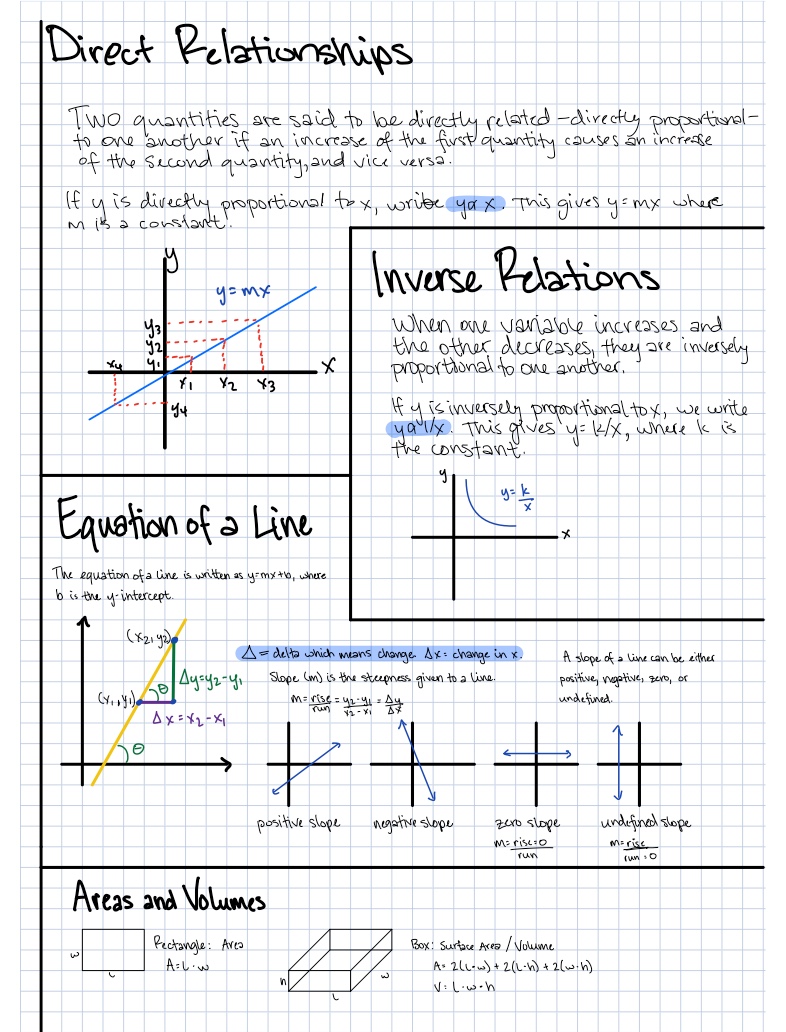 Direct Relationships
Two quantities are said to be directly related -directly proportional-
to one another if an increase of the first quantity causes an increase
of the second quantity, and vice versa.
If y is directly proportional to x, write yαx. This gives y=mx where
m is a constant.
y
y=mx
y3
y2
y1
x4
x
x1 x2 x3
y4
Inverse Relations
When one variable increases and
the other decreases, they are inversely
proportional to one another.
If y is inversely proportional to x, we write
yα1/x. This gives y=k/x, where k is
the constant.
y
y=k/x
x
Equation of a Line
The equation of a line is written as y=mx+b, where
b is the y-intercept.
(x2, y2)
Δy=y2-y1
(x1, y1)
θ
Δx=x2-x1
θ
Δ= delta which means change. Δx= change in x.
Slope (m) is the steepness given to a line.
m=rise/run = y2-y1/x2-x1 = Δy/Δx
A slope of a line can be either
positive, negative, zero, or
undefined.
positive slope
negative slope
zero slope
m=rise=0/run
undefined slope
m=rise/run=0
Areas and Volumes
w
L
Rectangle: Area
A=L·w
h
L
w
Box: Surface Area / Volume
A= 2(L·w)+2(L·h)+2(w·h)
V= L·w·h